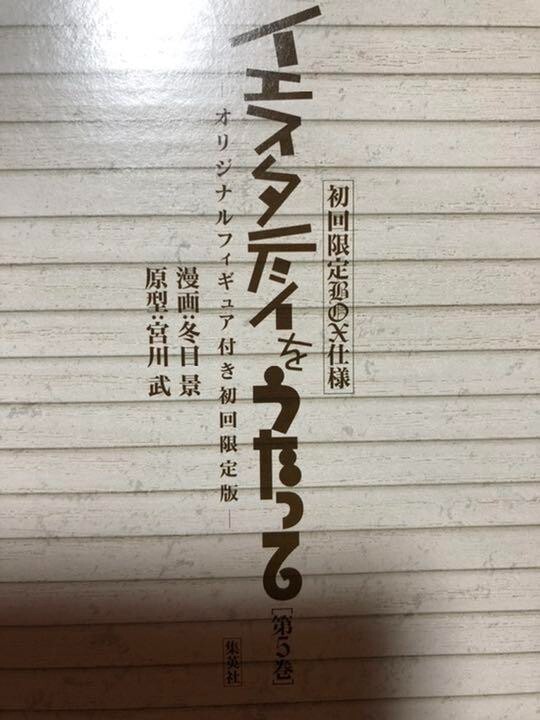 初回限定BOX仕様
イエスタデイをうたって
[第5巻]
―オリジナルフィギュア付き初回限定版―
漫画:冬目 景
原型:宮川 武
集英社